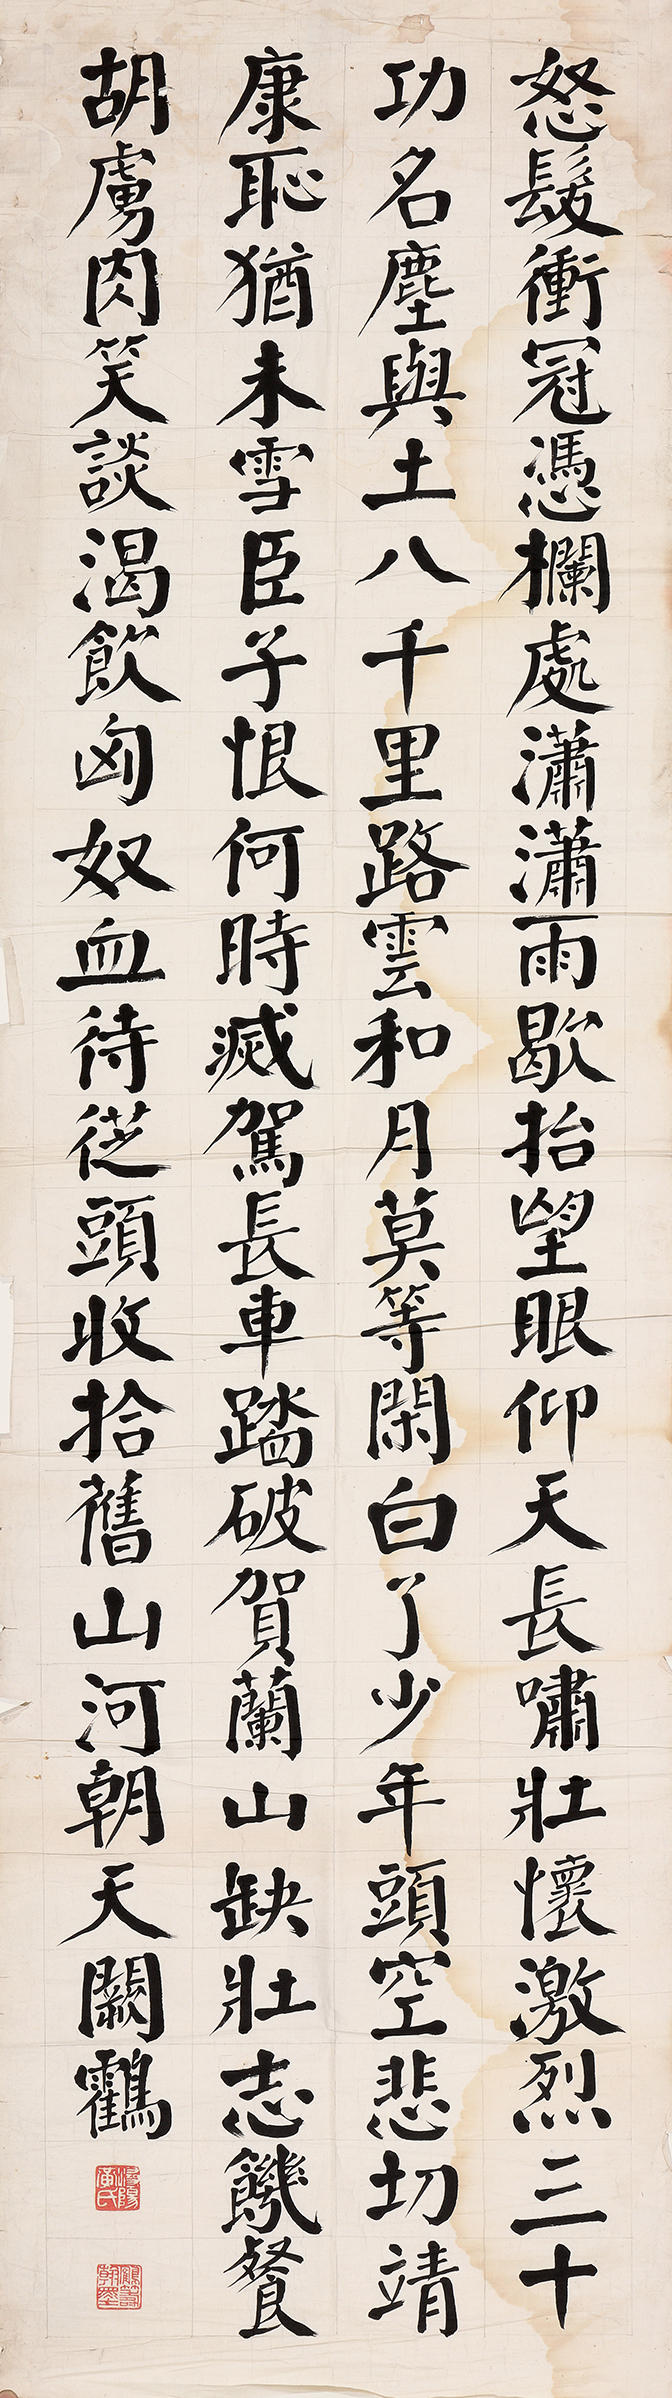 怒髮衝冠憑欄處瀟瀟雨歇抬望眼仰天長嘯壯懷激烈三十
功名塵與土八千里路雲和月莫等閑白了少年頭空悲切靖
康恥猶未雪臣子恨何時滅駕長車踏破賀蘭山缺壯志饑餐
胡虜肉笑談渴飲匈奴血待從頭收拾舊山河朝天闕鶴